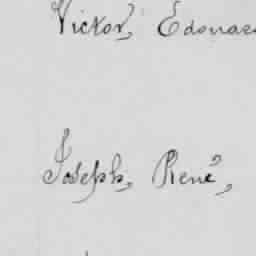 Victor, Edouar
Joseph, René,